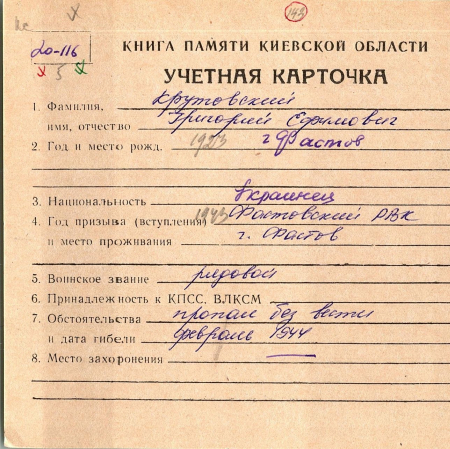 143
до-116
5
КНИГА ПАМЯТИ КИЕВСКОЙ ОБЛАСТИ
УЧЕТНАЯ КАРТОЧКА
1. Фамилия, Крутовский
имя, отчество Григорий Ефимович
2. Год и место рожд. 1923 г Фастов
3. Национальность Украинец
4. Год призыва (вступления) 1943 Фастовский РВК
и место проживания г. Фастов
5. Воинское звание рядовой
6. Принадлежность к КПСС, ВЛКСМ
7. Обстоятельства пропал без вести
и дата гибели февраль 1944
8. Место захоронения —